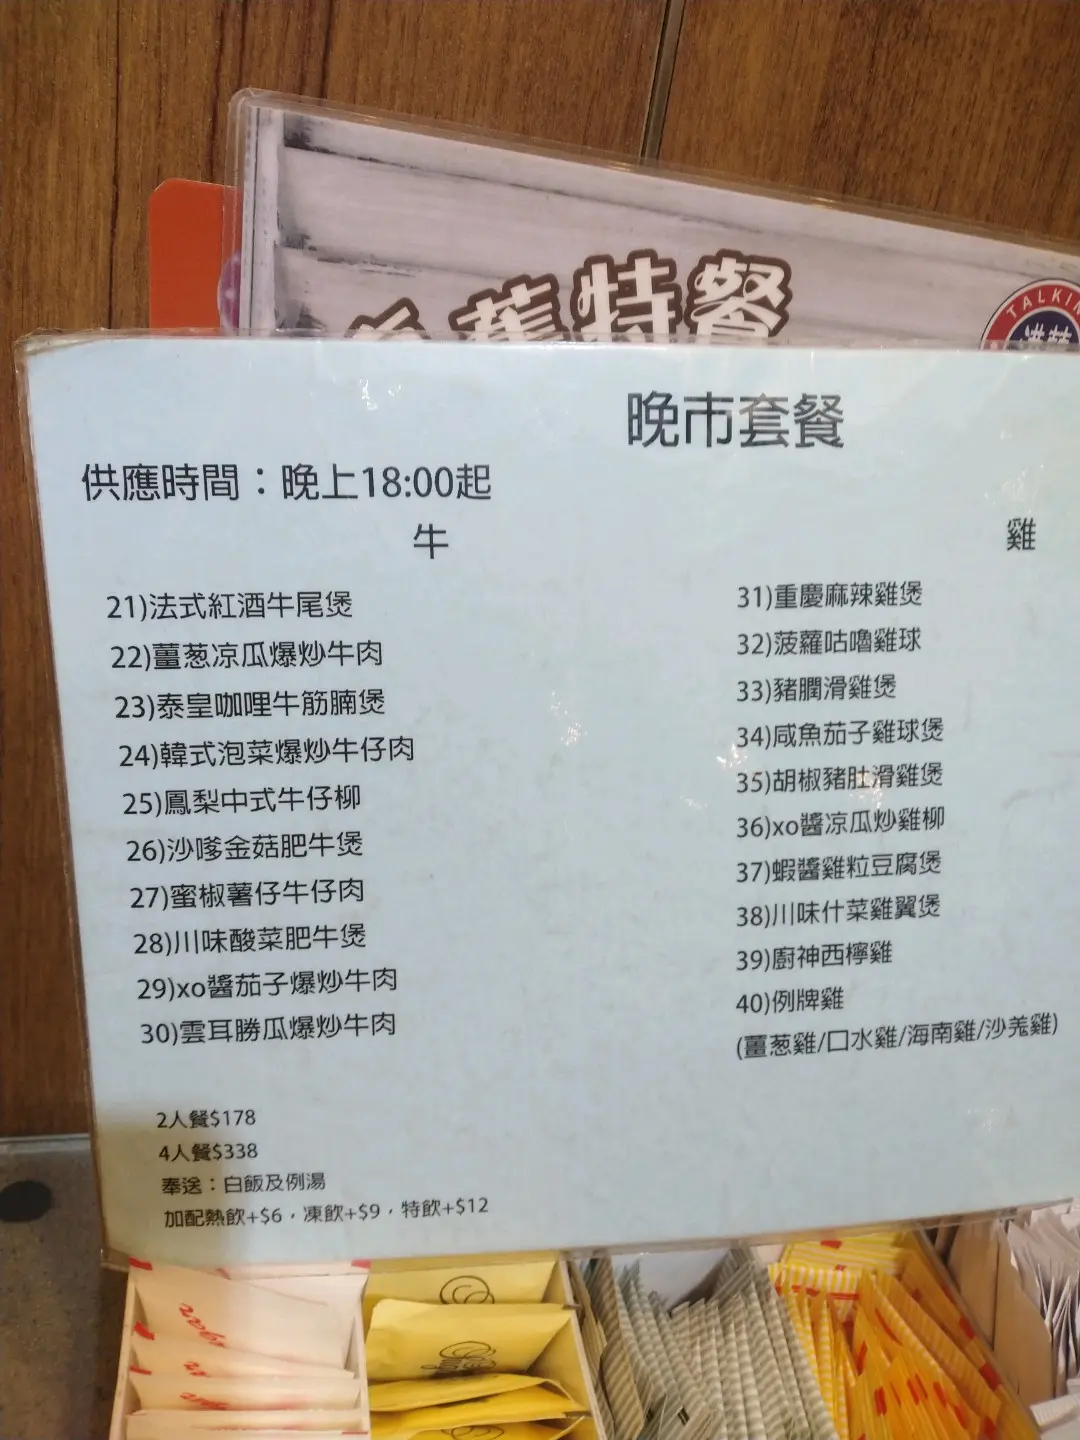 蕉特餐
TALKIN
港華
晚市套餐
供應時間：晚上18:00起
牛
21)法式紅酒牛尾煲
22)薑葱凉瓜爆炒牛肉
23)泰皇咖哩牛筋腩煲
24)韓式泡菜爆炒牛仔肉
25)鳳梨中式牛仔柳
26)沙嗲金菇肥牛煲
27)蜜椒薯仔牛仔肉
28)川味酸菜肥牛煲
29)xo醬茄子爆炒牛肉
30)雲耳勝瓜爆炒牛肉
2人餐$178
4人餐$338
奉送：白飯及例湯
加配熱飲+$6，凍飲+$9，特飲+$12
雞
31)重慶麻辣雞煲
32)菠蘿咕嚕雞球
33)豬膶滑雞煲
34)咸魚茄子雞球煲
35)胡椒豬肚滑雞煲
36)xo醬凉瓜炒雞柳
37)蝦醬雞粒豆腐煲
38)川味什菜雞翼煲
39)廚神西檸雞
40)例牌雞
(薑葱雞/口水雞/海南雞/沙羗雞)